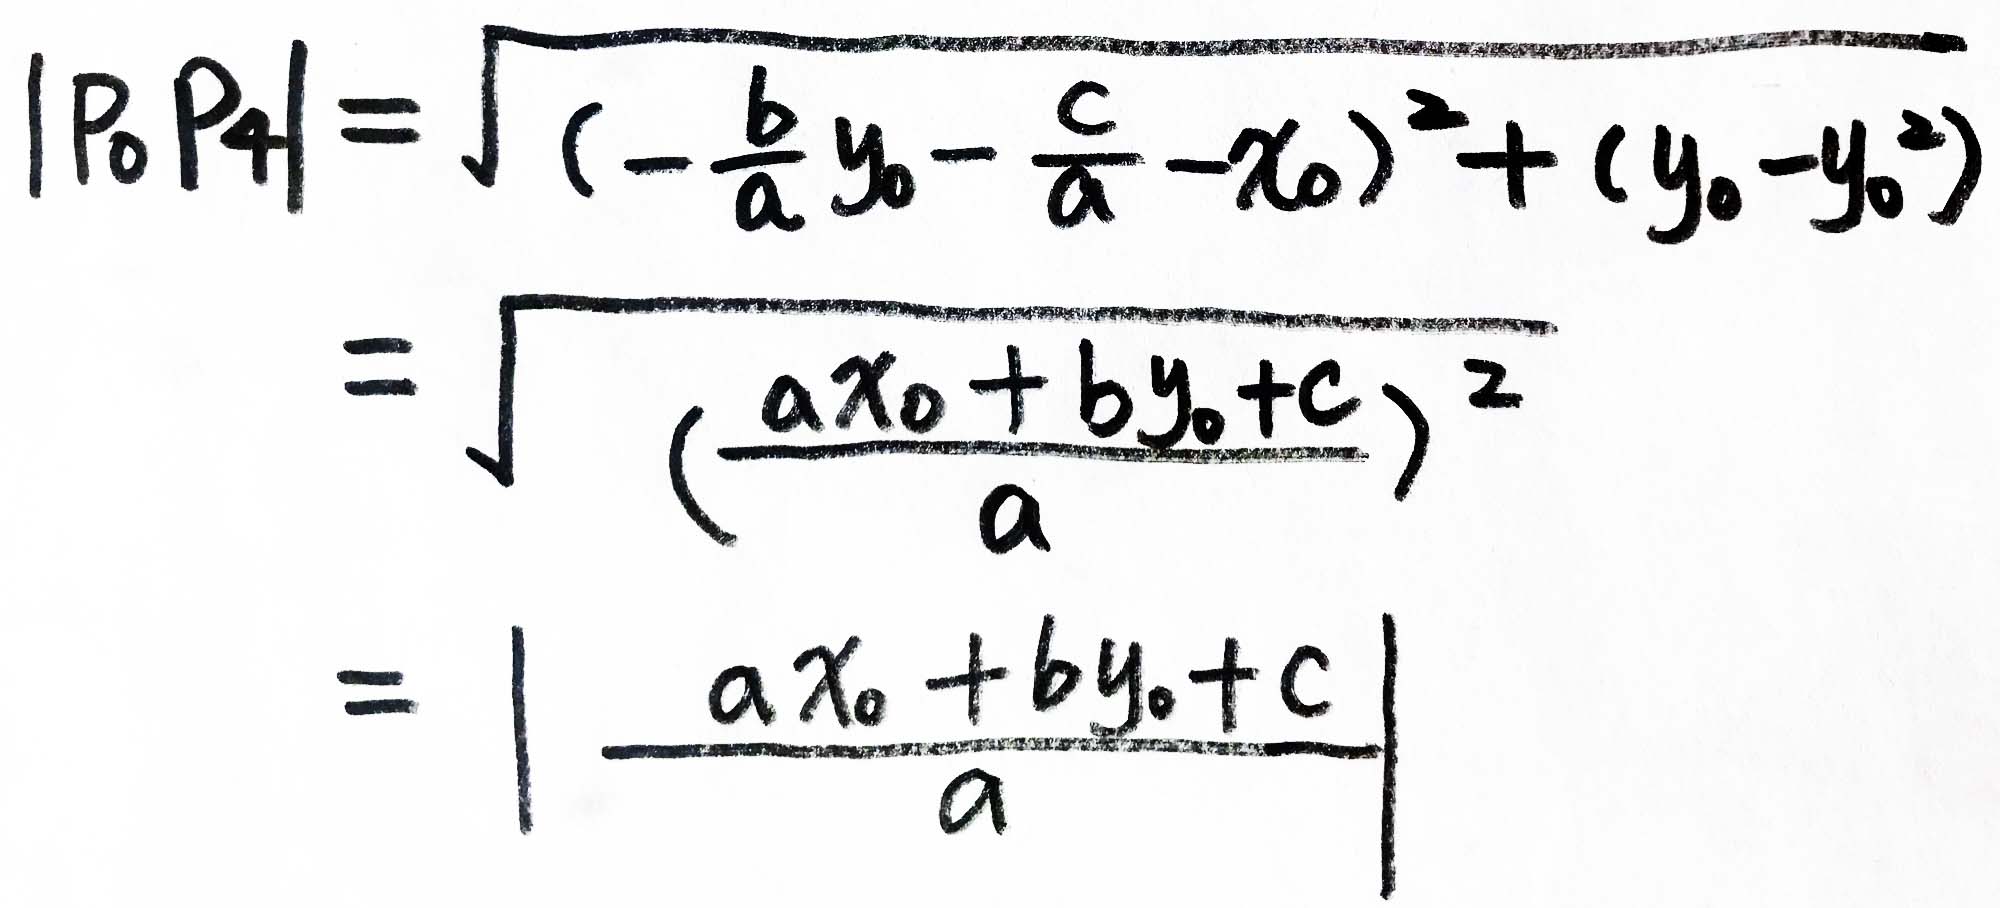 |P₀P₄| = √((-b/a y₀ - c/a - x₀)² + (y₀ - y₀²))
= √(((ax₀ + by₀ + c)/a)²)
= |(ax₀ + by₀ + c)/a|